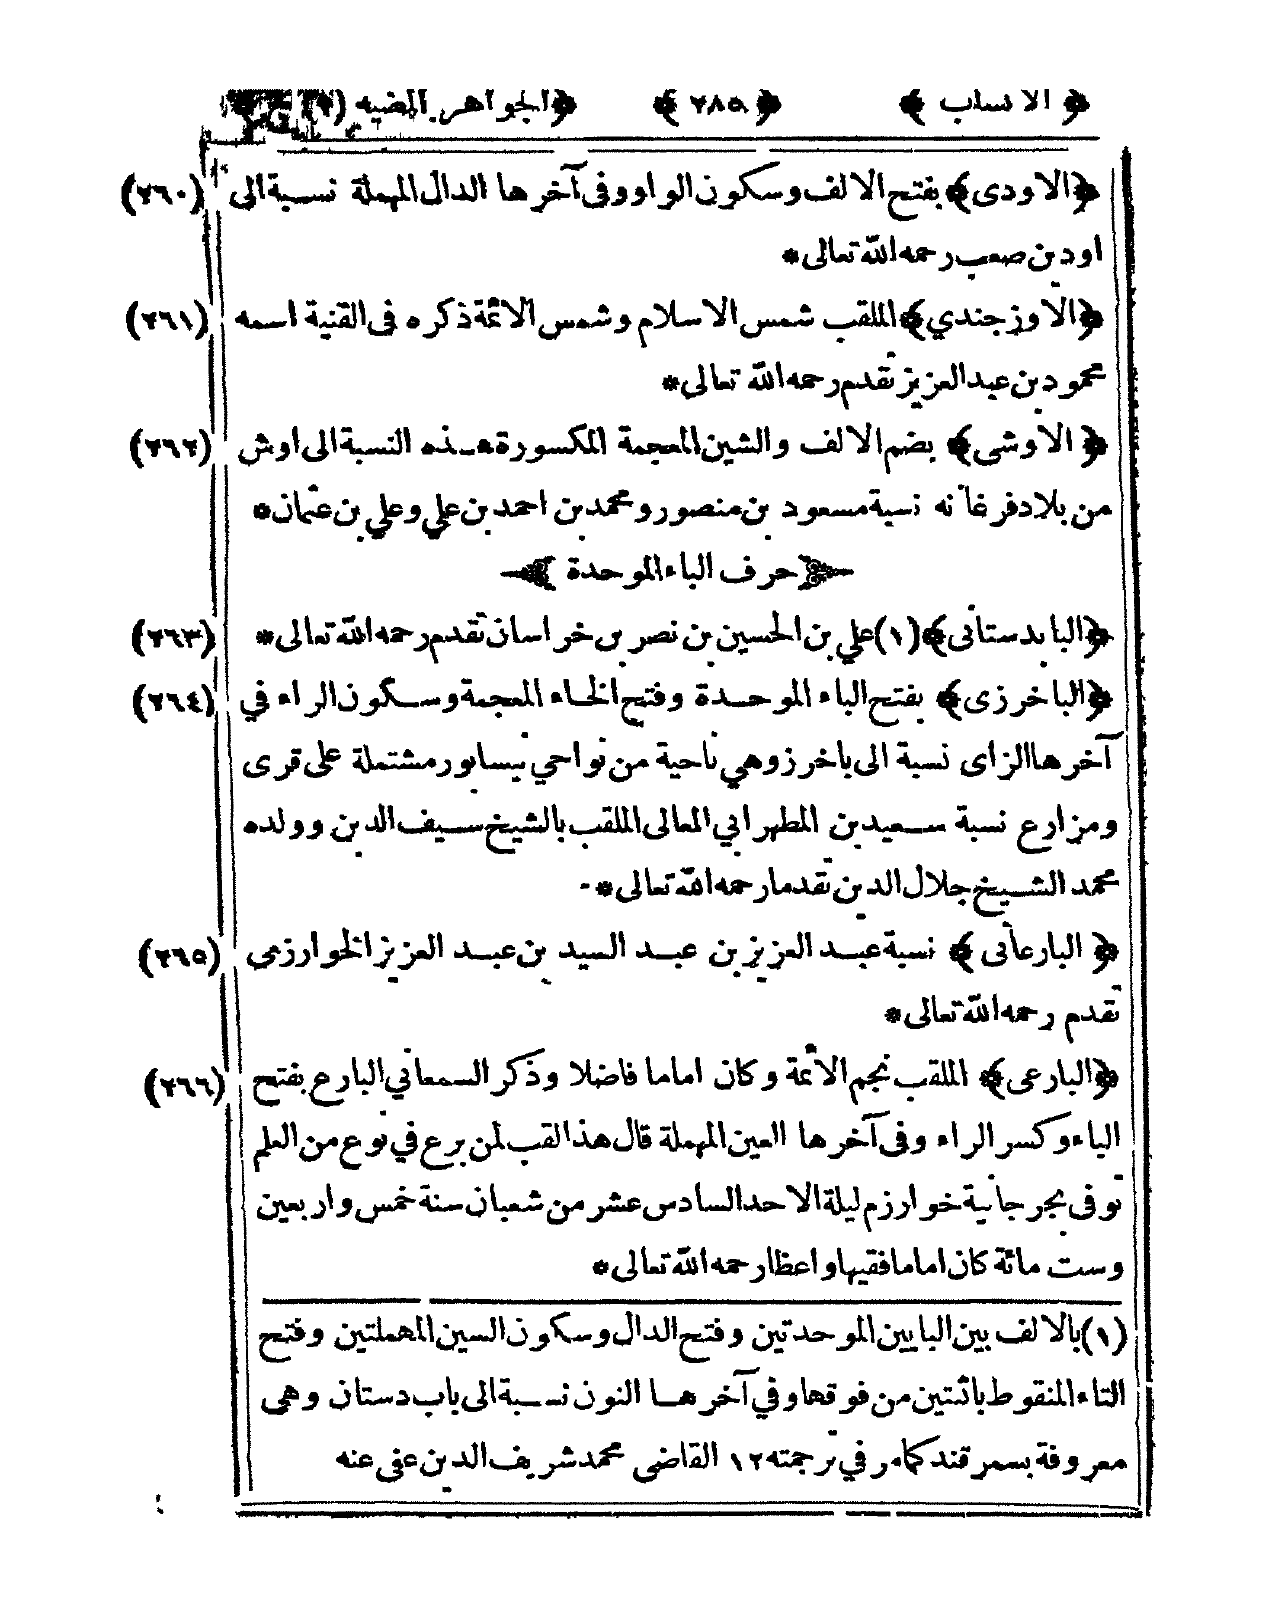 ﴿ الانساب ﴾ ﴿ ٢٨٥ ﴾ ﴿ الجواهر المضيه (٢)
﴿الاودى﴾ بفتح الالف وسكون الواو وفى آخرها الدال المهملة نسبة الى (٢٦٠)
اود بن صعب رحمه الله تعالى *
﴿الاوزجندي﴾ الملقب شمس الاسلام وشمس الائمة ذكره فى القنية اسمه (٢٦١)
محمود بن عبد العزيز تقدم رحمه الله تعالى *
﴿ الاوشى ﴾ بضم الالف والشين المعجمة المكسورة هذه النسبة الى اوش (٢٦٢)
من بلاد فرغانه نسبة مسعود بن منصور ومحمد بن احمد بن علي وعلي بن عثمان *
حرف الباء الموحدة
﴿البابدستانى﴾ (١) علي بن الحسين بن نصر بن خراسان تقدم رحمه الله تعالى * (٢٦٣)
﴿الباخرزى﴾ بفتح الباء الموحدة وفتح الخاء المعجمة وسكون الراء في (٢٦٤)
آخرها الزاى نسبة الى باخرز وهي ناحية من نواحي نيسابور مشتملة على قرى
ومزارع نسبة سعيد بن المطهر ابي المعالى الملقب بالشيخ سيف الدين وولده
محمد الشيخ جلال الدين تقدما رحمه الله تعالى *
﴿ البارعانى ﴾ نسبة عبد العزيز بن عبد السيد بن عبد العزيز الخوارزمى (٢٦٥)
تقدم رحمه الله تعالى *
﴿البارعى﴾ الملقب نجم الائمة وكان اماما فاضلا وذكر السمعاني البارع بفتح (٢٦٦)
الباء وكسر الراء وفى آخرها العين المهملة قال هذا لقب لمن برع في نوع من العلم
توفى بجرجانية خوارزم ليلة الاحد السادس عشر من شعبان سنة خمس واربعين
وست مائة كان اماما فقيها واعظا رحمه الله تعالى *
(١) بالالف بين البايين الموحدتين وفتح الدال وسكون السين المهملتين وفتح
التاء المنقوط باثنتين من فوقها وفي آخرها النون نسبة الى باب دستان وهى
معروفة بسمرقند كمامر في ترجمته ١٢ القاضى محمد شريف الدين عفى عنه